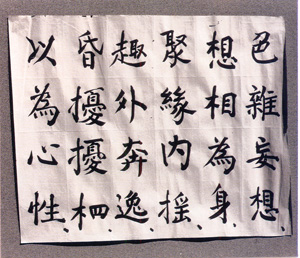 色雜妄想、
想相為身、
聚緣内搖、
趣外奔逸、
昏擾擾相、
以為心性、